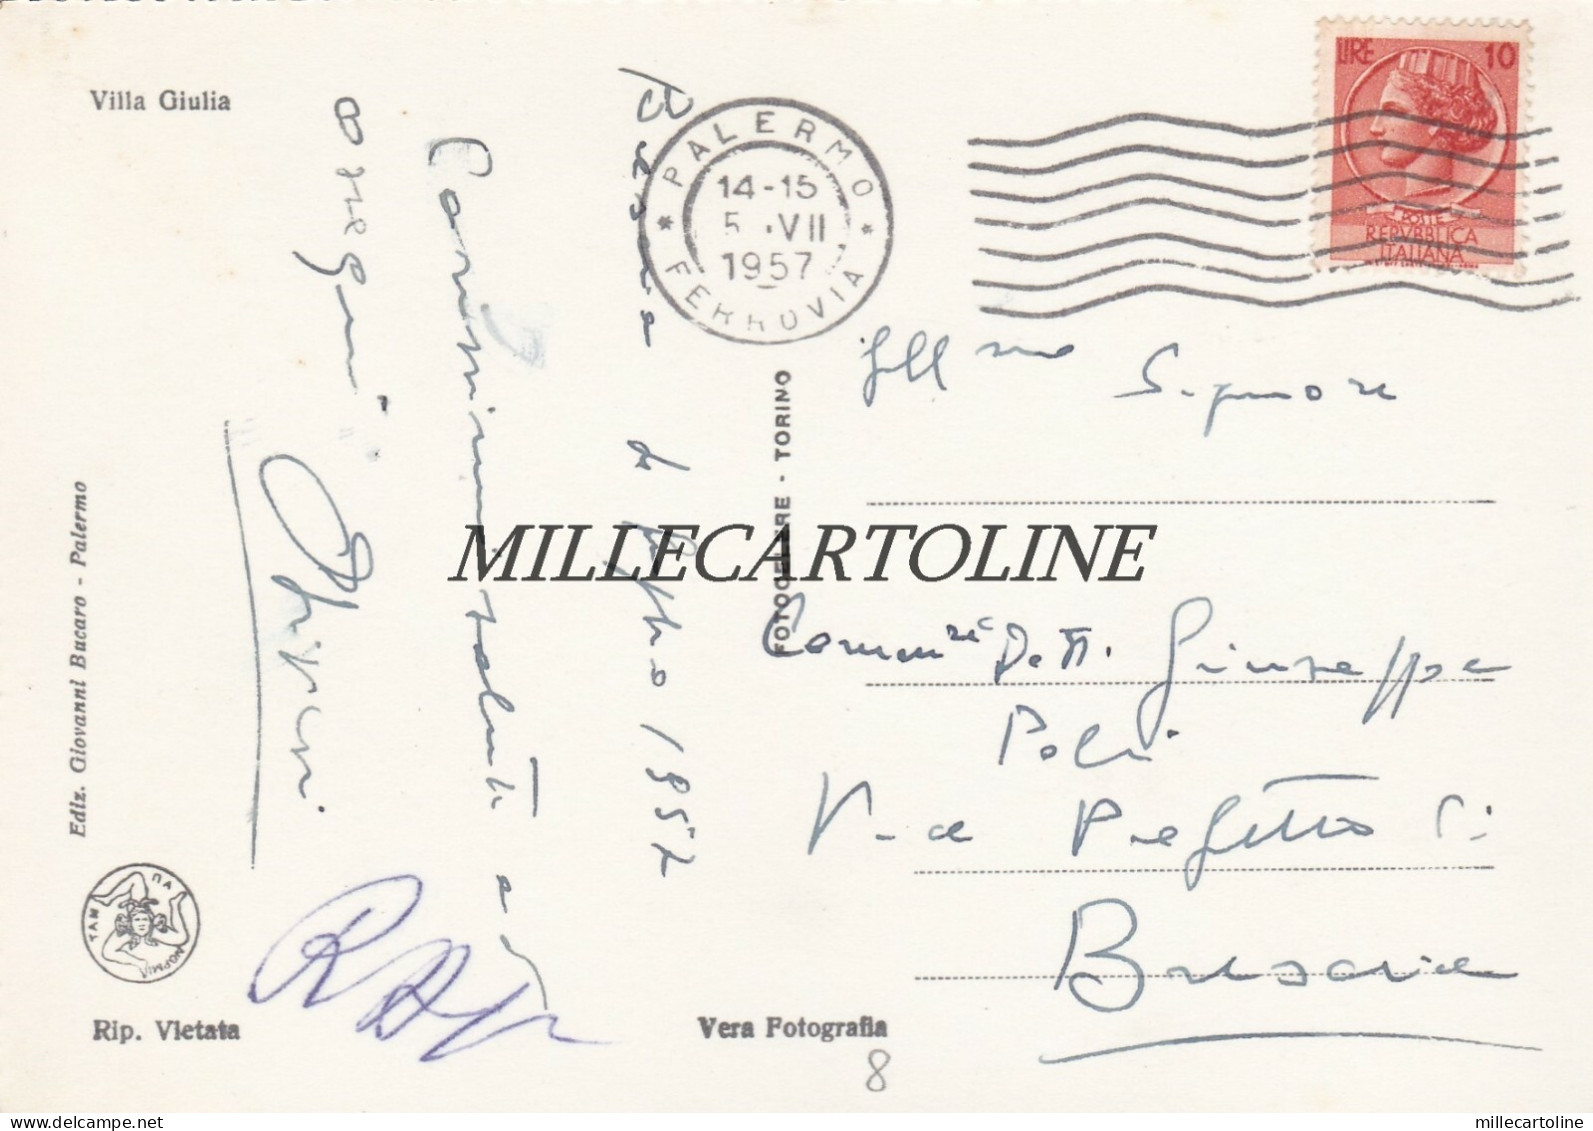 Villa Giulia
LIRE 10
POSTE
REPVBBLICA
ITALIANA
PALERMO
14-15
5 . VII
1957
* FERROVIA *
luglio 1957
Cordialissimi saluti e
ossequi
Ill mo Signore
Comm. Dott. Giuseppe
Poli
Brescia
FOTOCELERE - TORINO
MILLECARTOLINE
Ediz. Giovanni Bucaro - Palermo
Rip. Vietata
Vera Fotografia
8
millecartoline